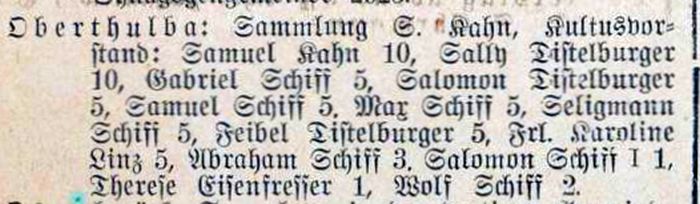 Oberthulba: Sammlung S. Kahn, Kultusvor-
stand: Samuel Kahn 10, Sally Tistelburger
10, Gabriel Schiff 5, Salomon Tistelburger
5, Samuel Schiff 5, Max Schiff 5, Seligmann
Schiff 5, Feibel Tistelburger 5, Frl. Karoline
Linz 5, Abraham Schiff 3, Salomon Schiff I 1,
Therese Eisenfresser 1, Wolf Schiff 2.